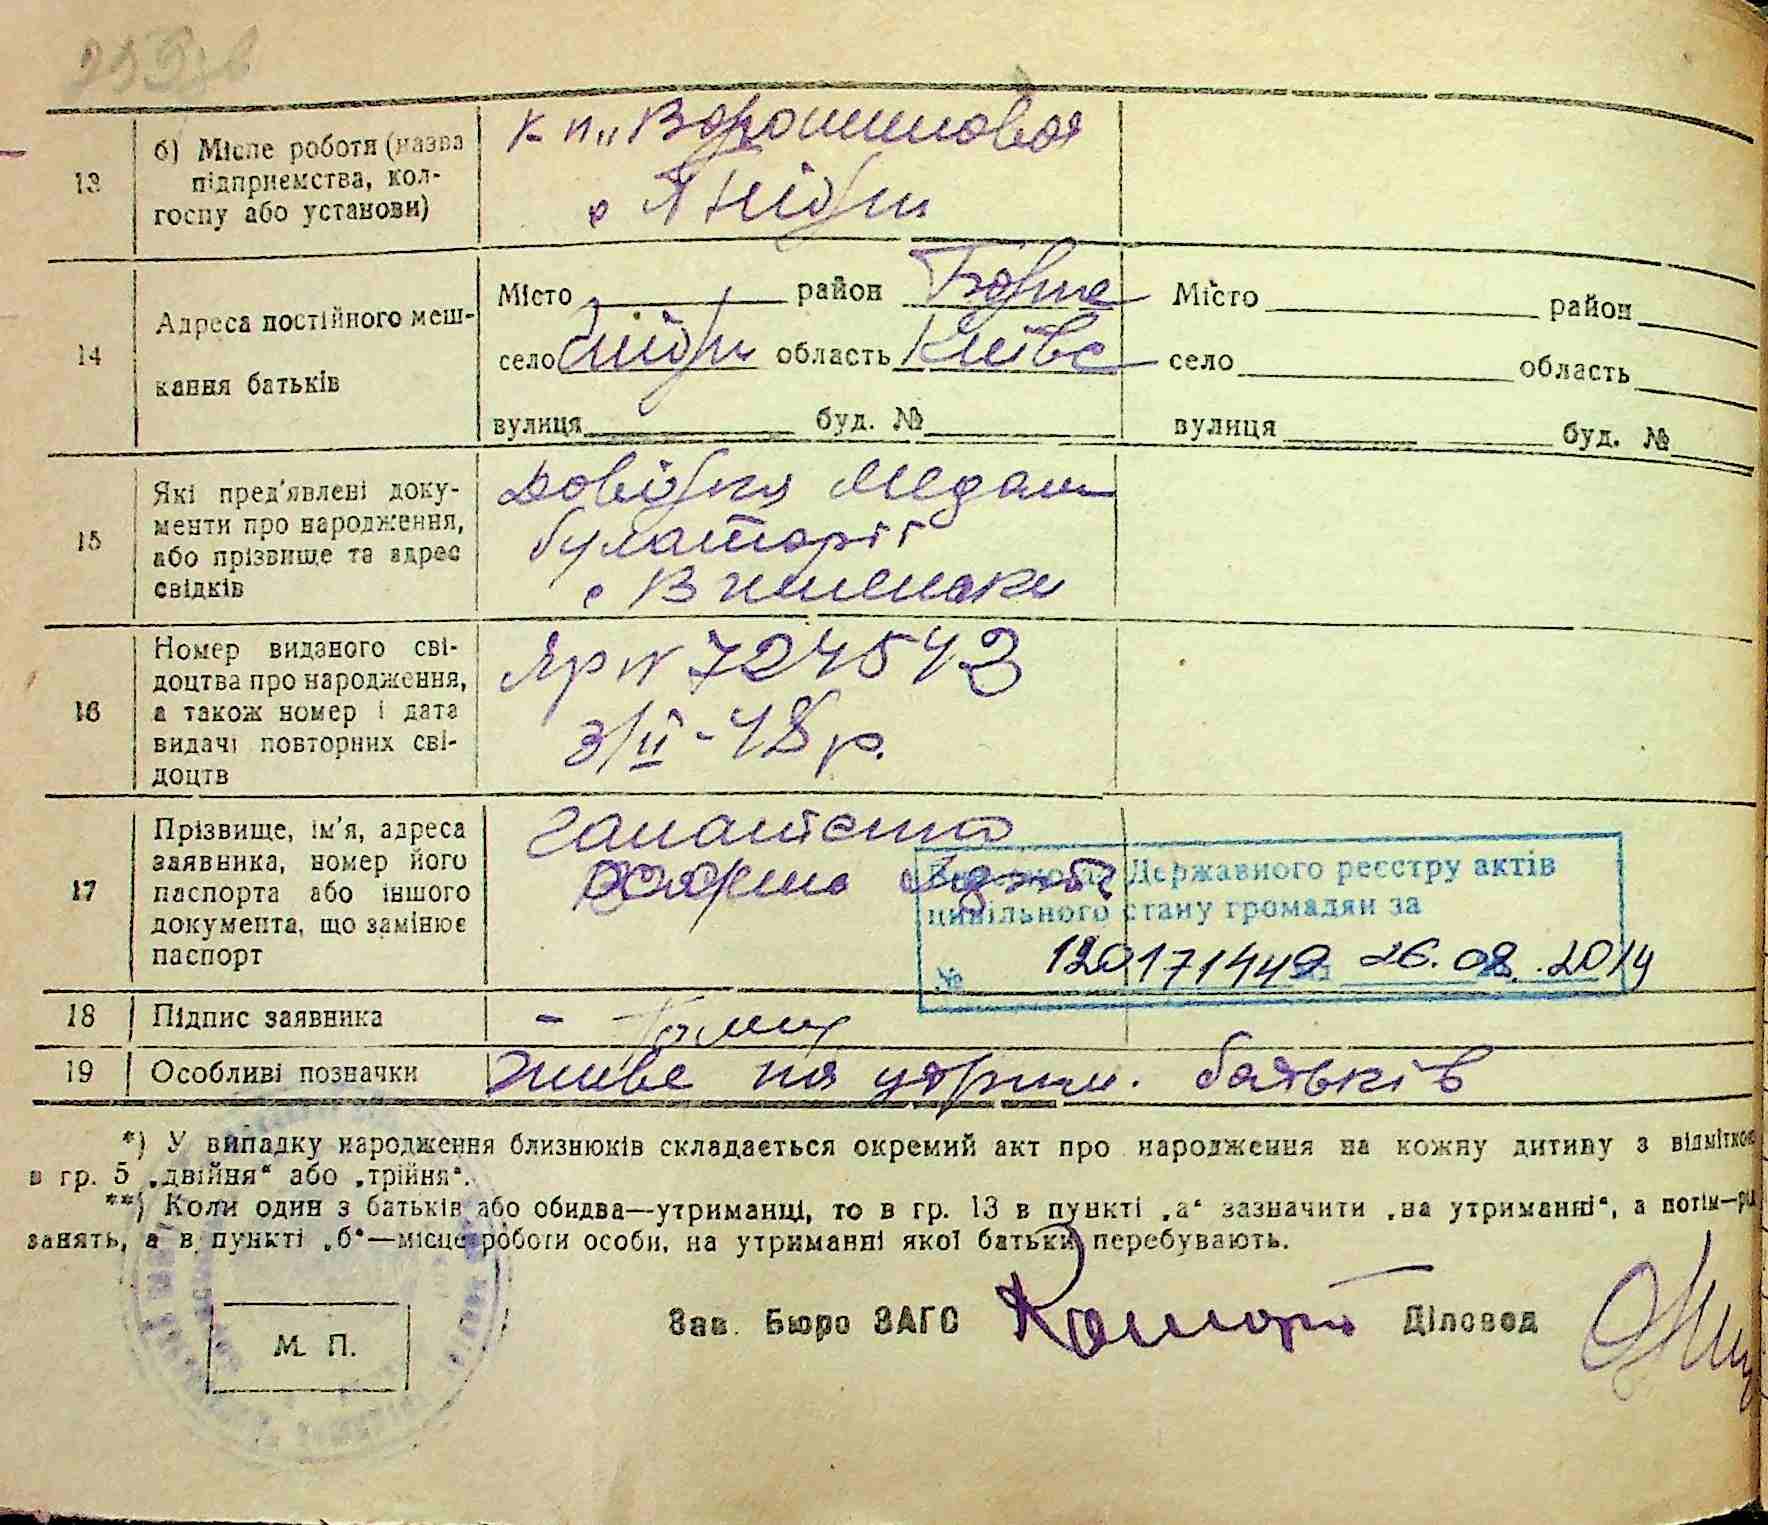 13
б) Місце роботи (назва
підприємства, кол-
госпу або установи)
к-п „Ворошилова
с Гнідин
14
Адреса постійного меш-
кання батьків
Місто район Борис
село Гнідин область Київс
вулиця буд. №
Місто район
село область
вулиця буд. №
15
Які пред'явлені доку-
менти про народження,
або прізвище та адрес
свідків
Довідка Медам
булаторіі
с Вишеньки
16
Номер виданого сві-
доцтва про народження,
а також номер і дата
видачі повторних сві-
доцтв
Яр № 724542
3/II-48 р.
17
Прізвище, ім'я, адреса
заявника, номер його
паспорта або іншого
документа, що замінює
паспорт
Державного реєстру актів
цивільного стану громадян за
№ 120171449 26.02.2014
18
Підпис заявника
19
Особливі позначки
живе на утрим. батьків
*) У випадку народження близнюків складається окремий акт про народження на кожну дитину з відміткою
в гр. 5 „двійня“ або „трійня“.
**) Коли один з батьків або обидва—утриманці, то в гр. 13 в пункті „а“ зазначити „на утриманні“, а потім—рід
занять, а в пункті „б“—місце роботи особи, на утриманні якої батьки перебувають.
Зав. Бюро ЗАГС
Діловод
М. П.